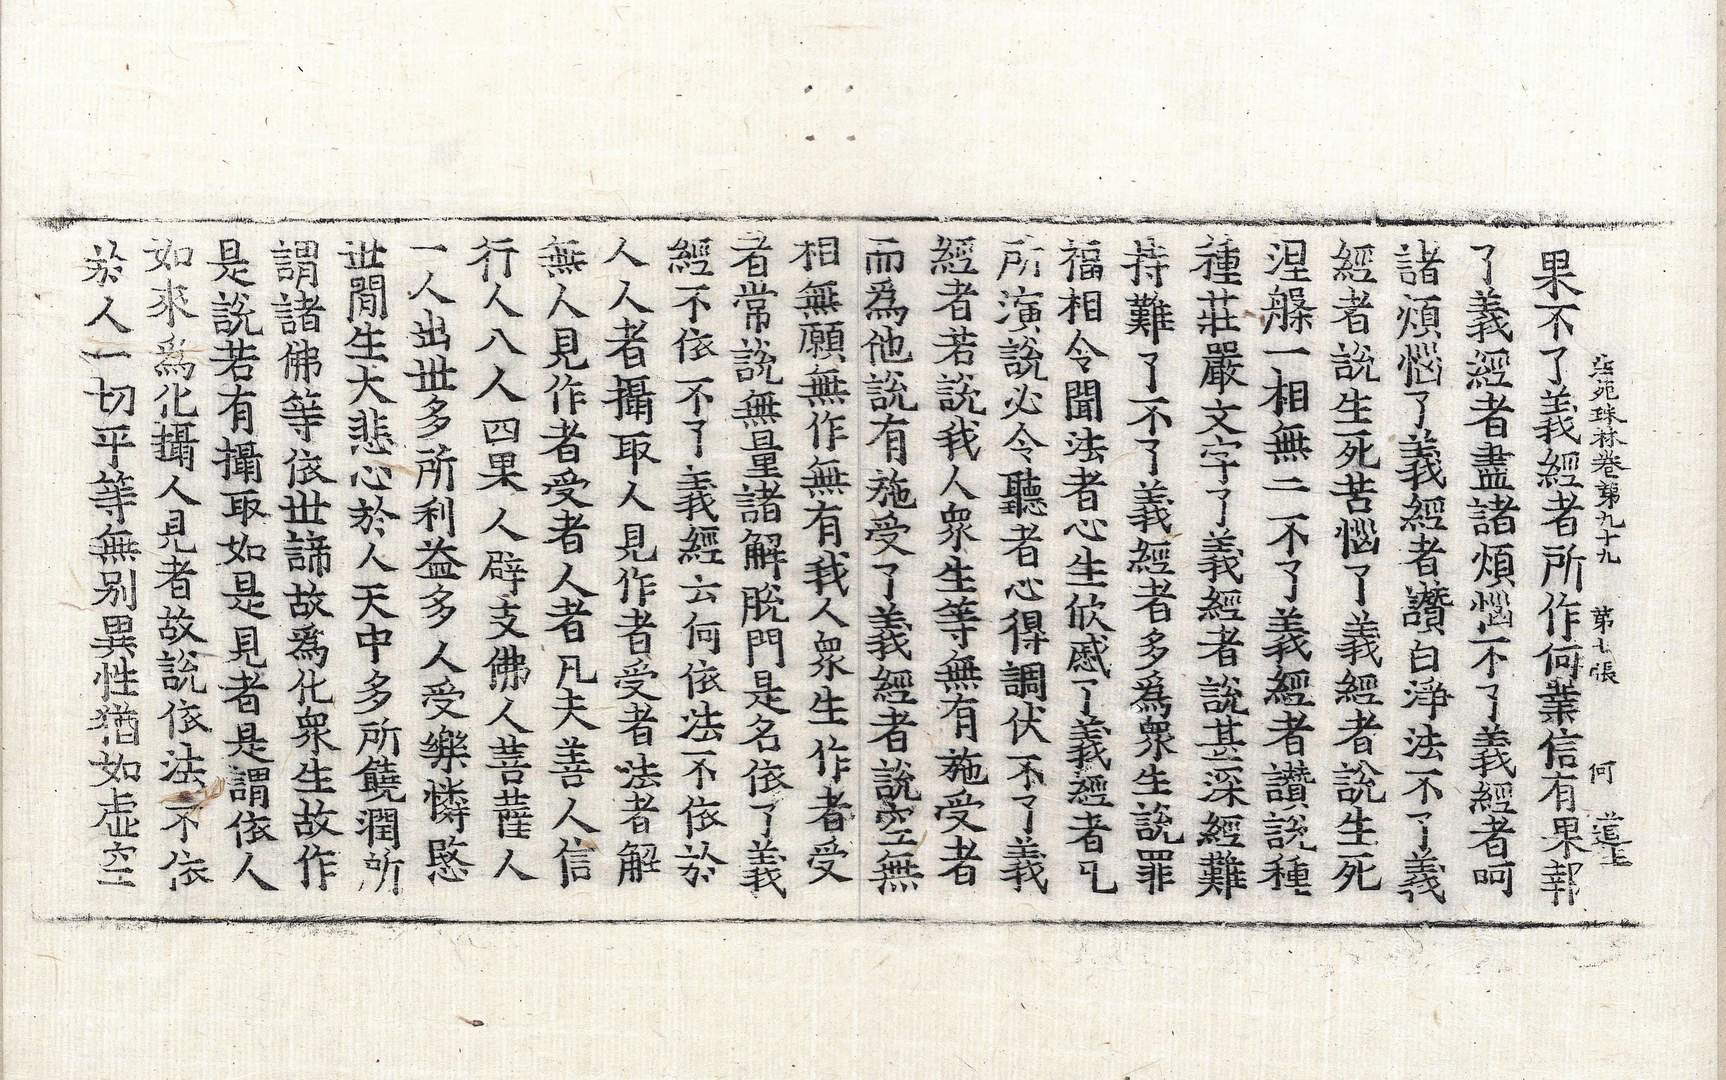 法苑珠林卷第九十九 第七張 何 道上
果不了義經者所作何業信有果報
了義經者盡諸煩惱不了義經者呵
諸煩惱了義經者讚白淨法不了義
經者說生死苦惱了義經者說生死
涅槃一相無二不了義經者讚說種
種莊嚴文字了義經者說甚深經難
持難了不了義經者多爲衆生說罪
福相令聞法者心生欣慼了義經者凡
所演說必令聽者心得調伏不了義
經者若說我人衆生等無有施受者
而爲他說有施受了義經者說空無
相無願無作無有我人衆生作者受
者常說無量諸解脫門是名依了義
經不依不了義經云何依法不依於
人人者攝取人見作者受者法者解
無人見作者受者人者凡夫善人信
行人八人四果人辟支佛人菩薩人
一人出世多所利益多人受樂憐愍
世間生大悲心於人天中多所饒潤所
謂諸佛等依世諦故爲化衆生故作
是說若有攝取如是見者是謂依人
如來爲化攝人見者故說依法不依
於人一切平等無別異性猶如虛空